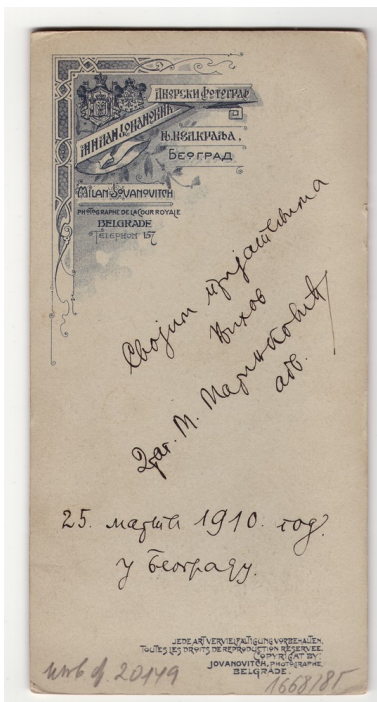 Дворски Фотограф
Милан Јовановић
Њ. Вел. Краља.
Београд
Milan Jovanovitch
PHOTOGRAPHE DE LA COUR ROYALE
BELGRADE
TELEPHON 157
Својим пријатељима
Њихов
Драг. М. Маринковић
адв.
25. марта 1910. год.
у Београду.
JEDE ART VERVIELFÄLTIGUNG VORBEHALTEN.
TOUTES LES DROITS DE REPRODUCTION RÉSERVÉE.
COPYRIGHT BY:
JOVANOVITCH, PHOTOGRAPHE,
BELGRADE.
20149
1668/85